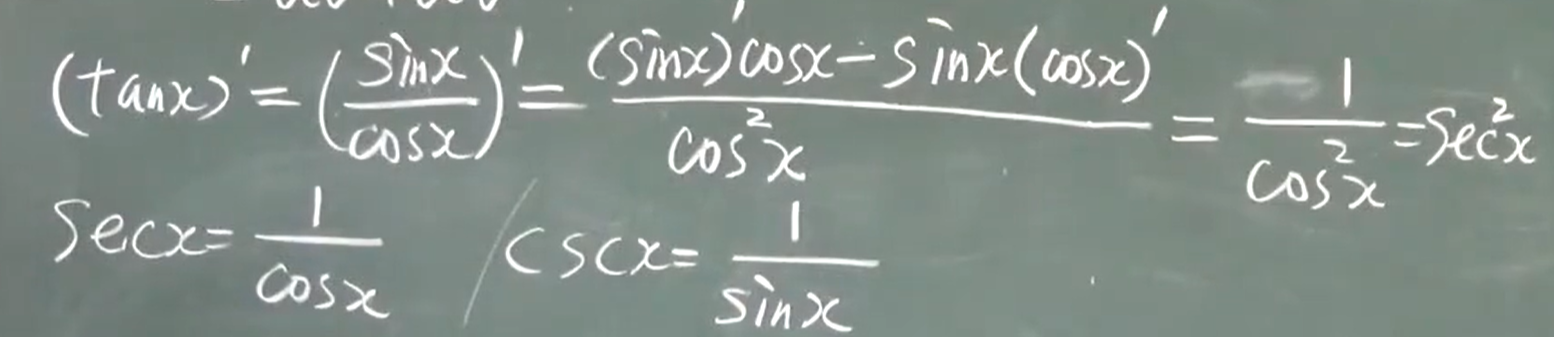 (tanx)' = (sinx/cosx)' = ((sinx)'cosx - sinx(cosx)')/cos²x = 1/cos²x = sec²x
secx = 1/cosx / cscx = 1/sinx